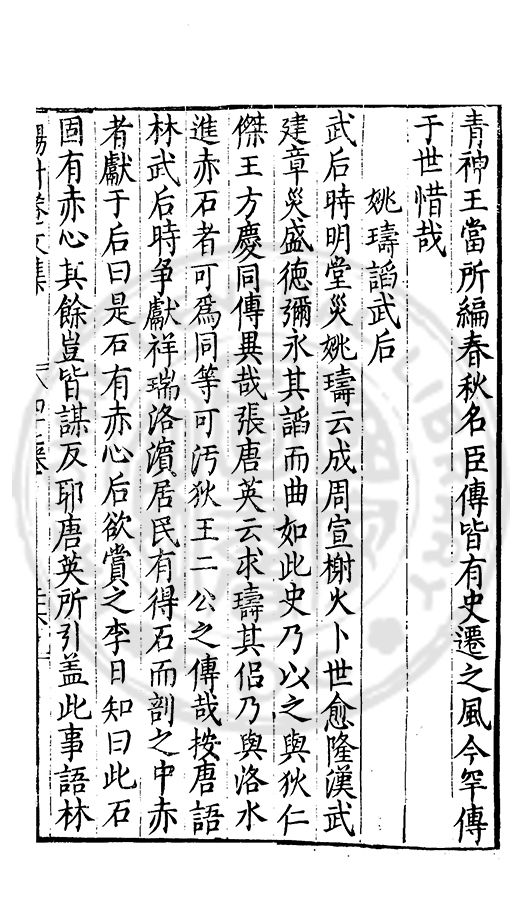 青神王當所編春秋名臣傳皆有史遷之風今罕傳
于世惜哉
姚璹謟武后
武后時明堂災姚璹云成周宣榭火卜世愈隆漢武
建章災盛德彌永其謟而曲如此史乃以之與狄仁
傑王方慶同傳異哉張唐英云求璹其侣乃與洛水
進赤石者可爲同等可汚狄王二公之傳哉按唐語
林武后時爭獻祥瑞洛濵居民有得石而剖之中赤
者獻于后曰是石有赤心后欲賞之李日知曰此石
固有赤心其餘豈皆謀反耶唐英所引盖此事語林